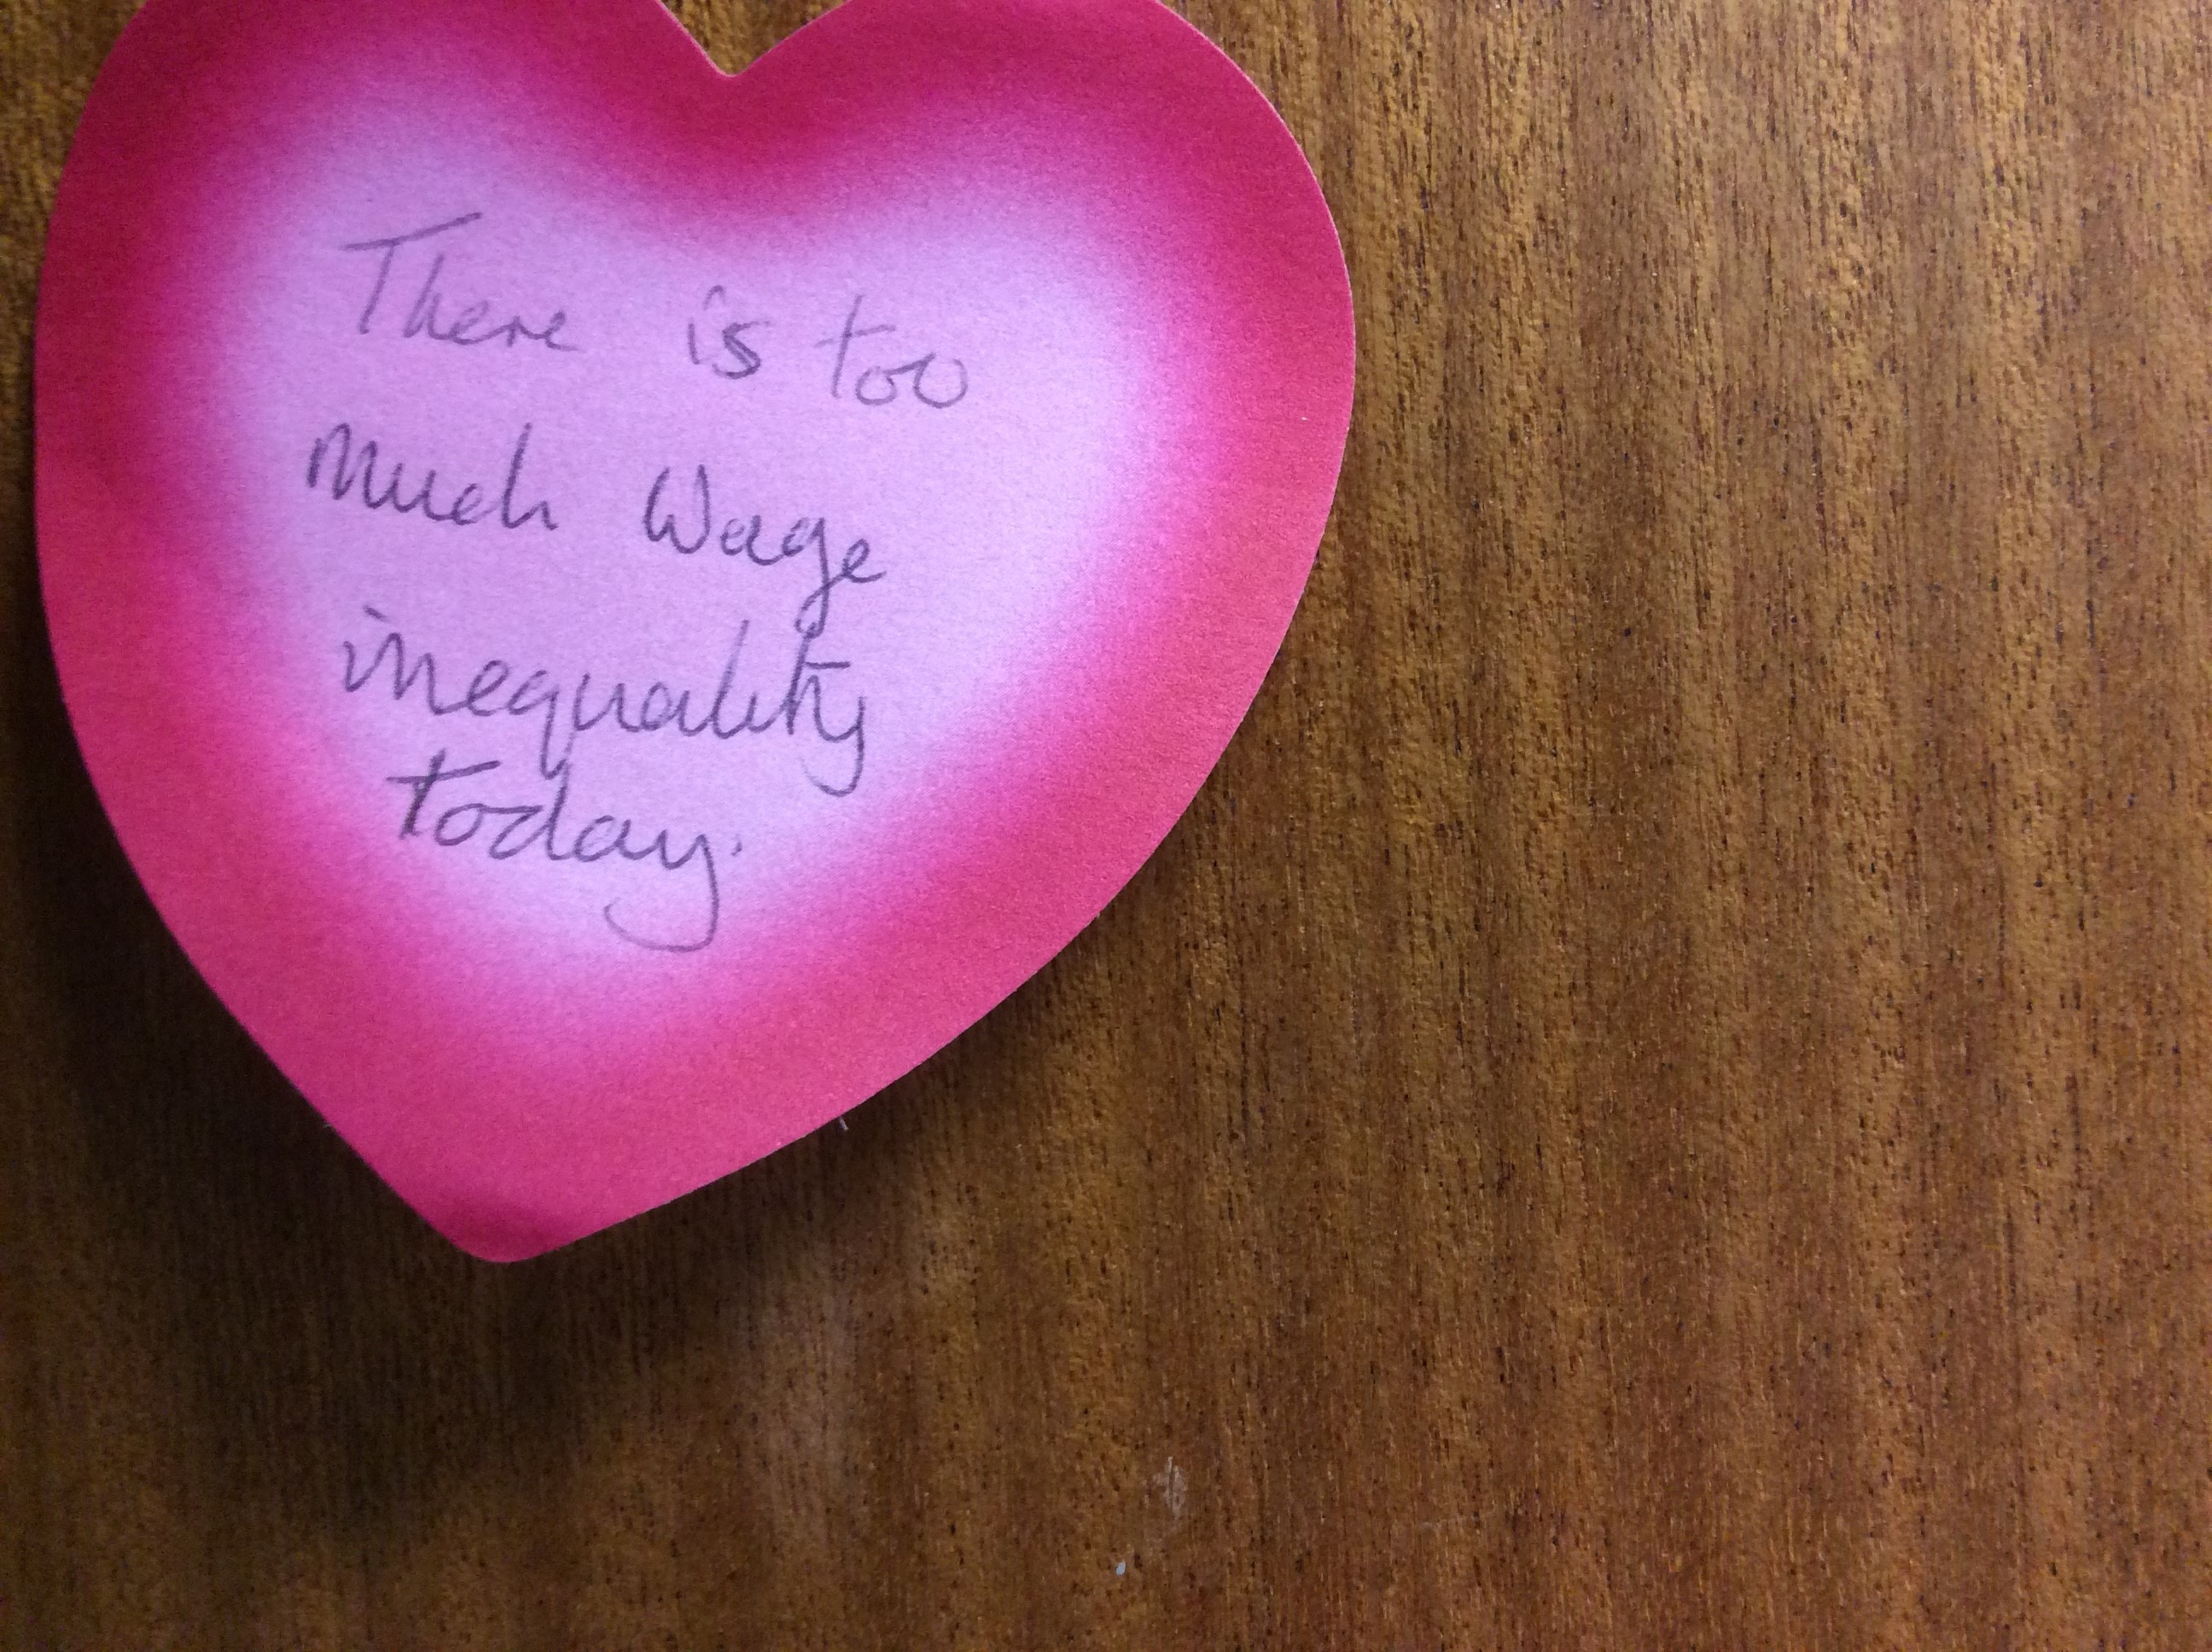 There is too
much Wage
inequality
today.